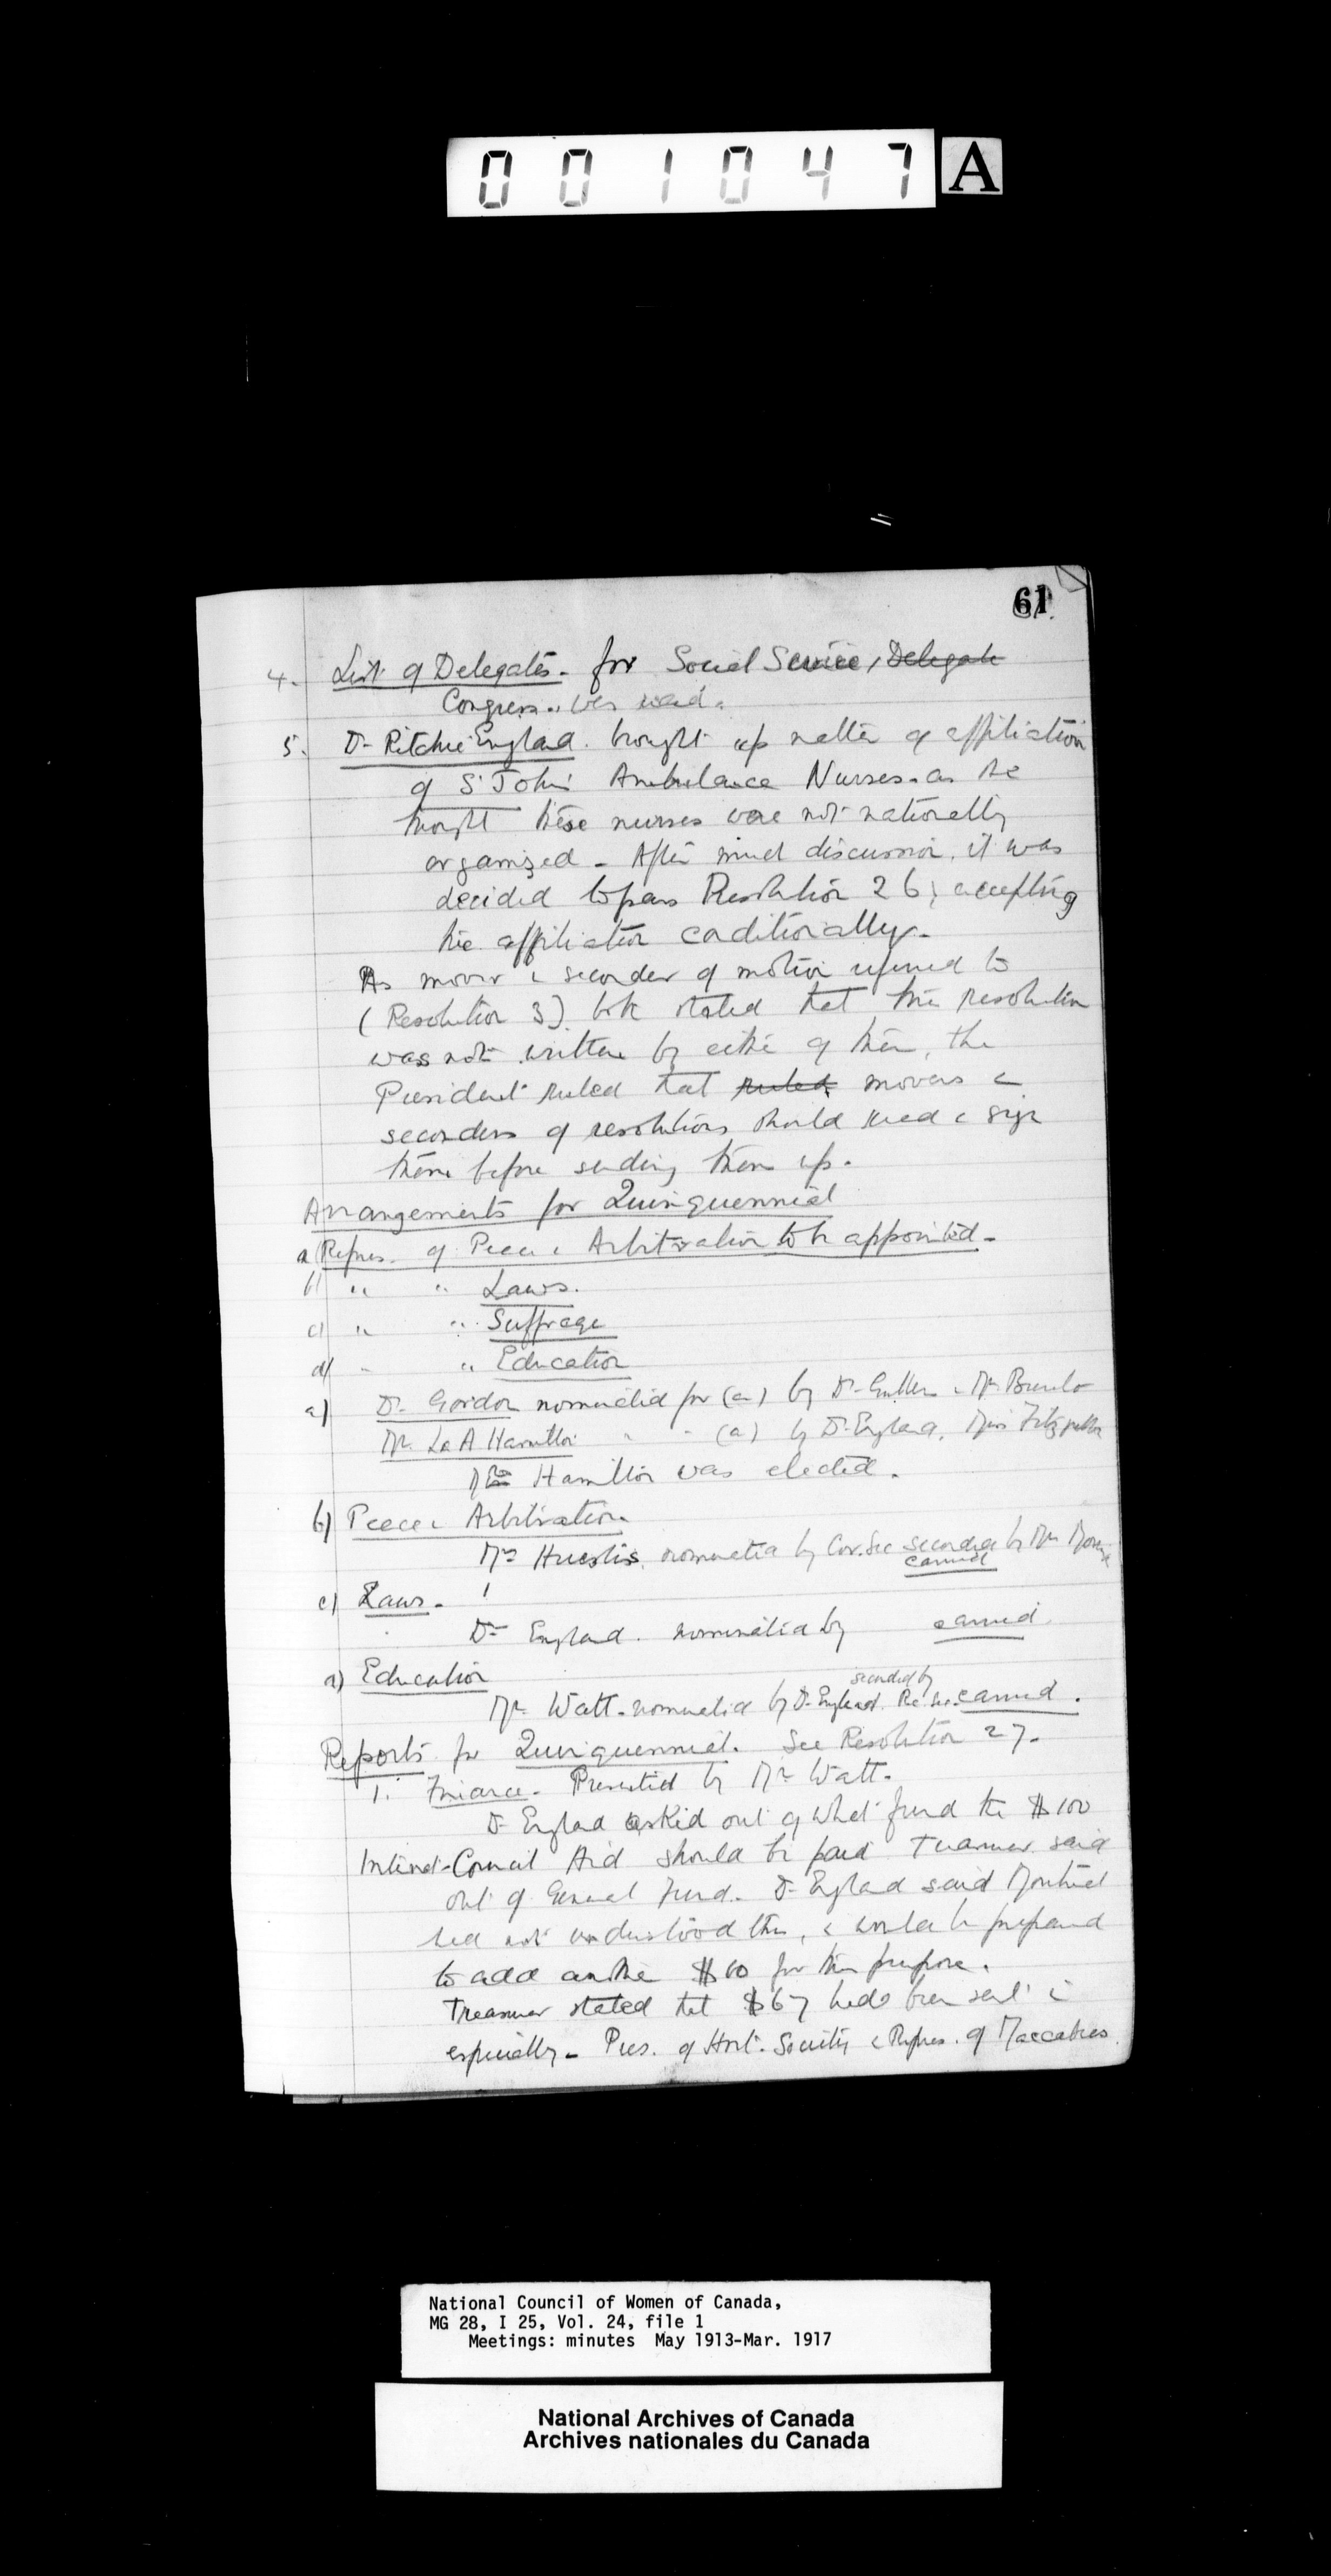 001047 A
61
4. List of Delegates - for Social Service, Delegate
Congress - was read.
5. Dr Ritchie England brought up matter of affiliation
of St John Ambulance Nurses - as she
thought these nurses were not nationally
organized - After much discussion, it was
decided to pass Resolution 26, accepting
the affiliation conditionally -
As mover & seconder of motion referred to
(Resolution 3) both stated that the resolution
was not written by either of them, the
President ruled that ruled movers &
seconders of resolutions should read & sign
them before sending them up.
Arrangements for Quinquennial
a) Repres. of Peace & Arbitration to be appointed -
b) " " Laws.
c) " " Suffrage
d) " " Education
a) Dr Gordon nominated for (a) by Dr Gullen &
Mrs L. A Hamilton " " (a) by Dr England, Miss Fitzgibbon
Mrs Hamilton was elected.
b) Peace & Arbitration
Mrs Huestis nominated by Cor. Sec seconded by Mrs
carried
c) Laws -
Dr England nominated by carried.
d) Education
seconded by
Mrs Watt - nominated by Dr England Rec Sec carried.
Reports for Quinquennial. See Resolution 27.
1. Finance - Presented by Mrs Watt.
Dr England asked out of what fund the $100
Internat-Council Aid should be paid Treasurer said
out of General Fund - Dr England said Montreal
had not understood this, & would be prepared
to add another $10 for this purpose.
Treasurer stated that $67 had been sent in
especially - Pres. of Hort. Society & Repres. of Maccabees
National Council of Women of Canada,
MG 28, I 25, Vol. 24, file 1
Meetings: minutes May 1913-Mar. 1917
National Archives of Canada
Archives nationales du Canada